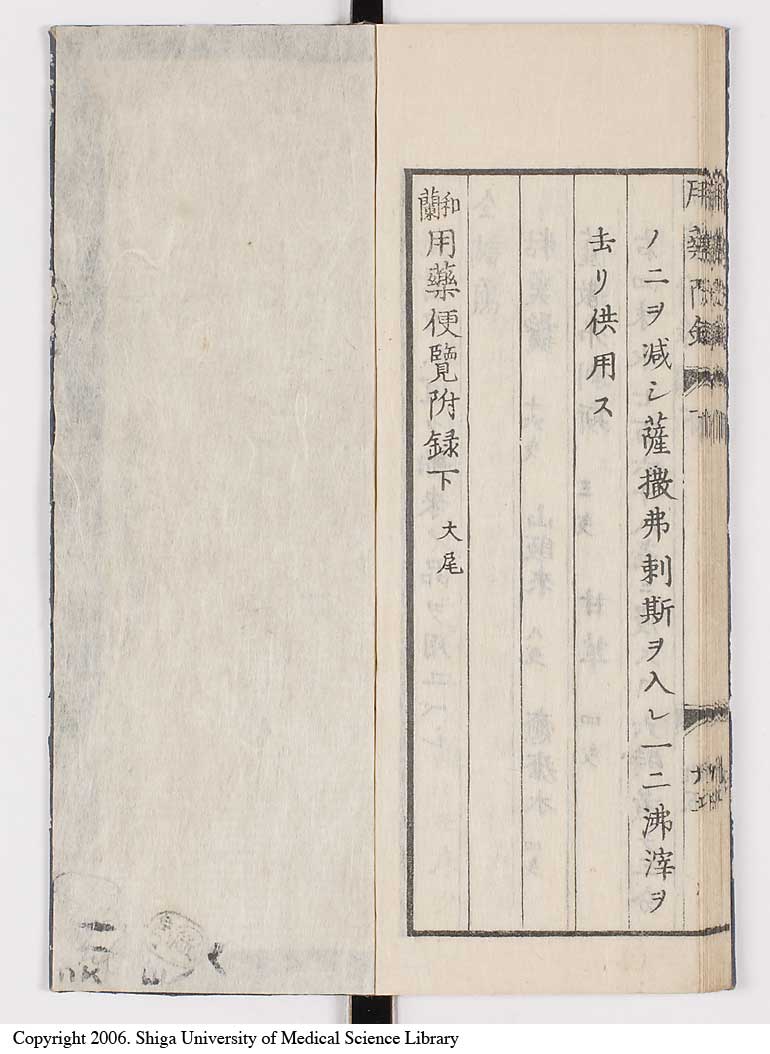 ノ二ヲ減シ薩撒弗剌斯ヲ入レ一二沸滓ヲ
去リ供用ス
和蘭用藥便覽附録下 大尾
Copyright 2006. Shiga University of Medical Science Library